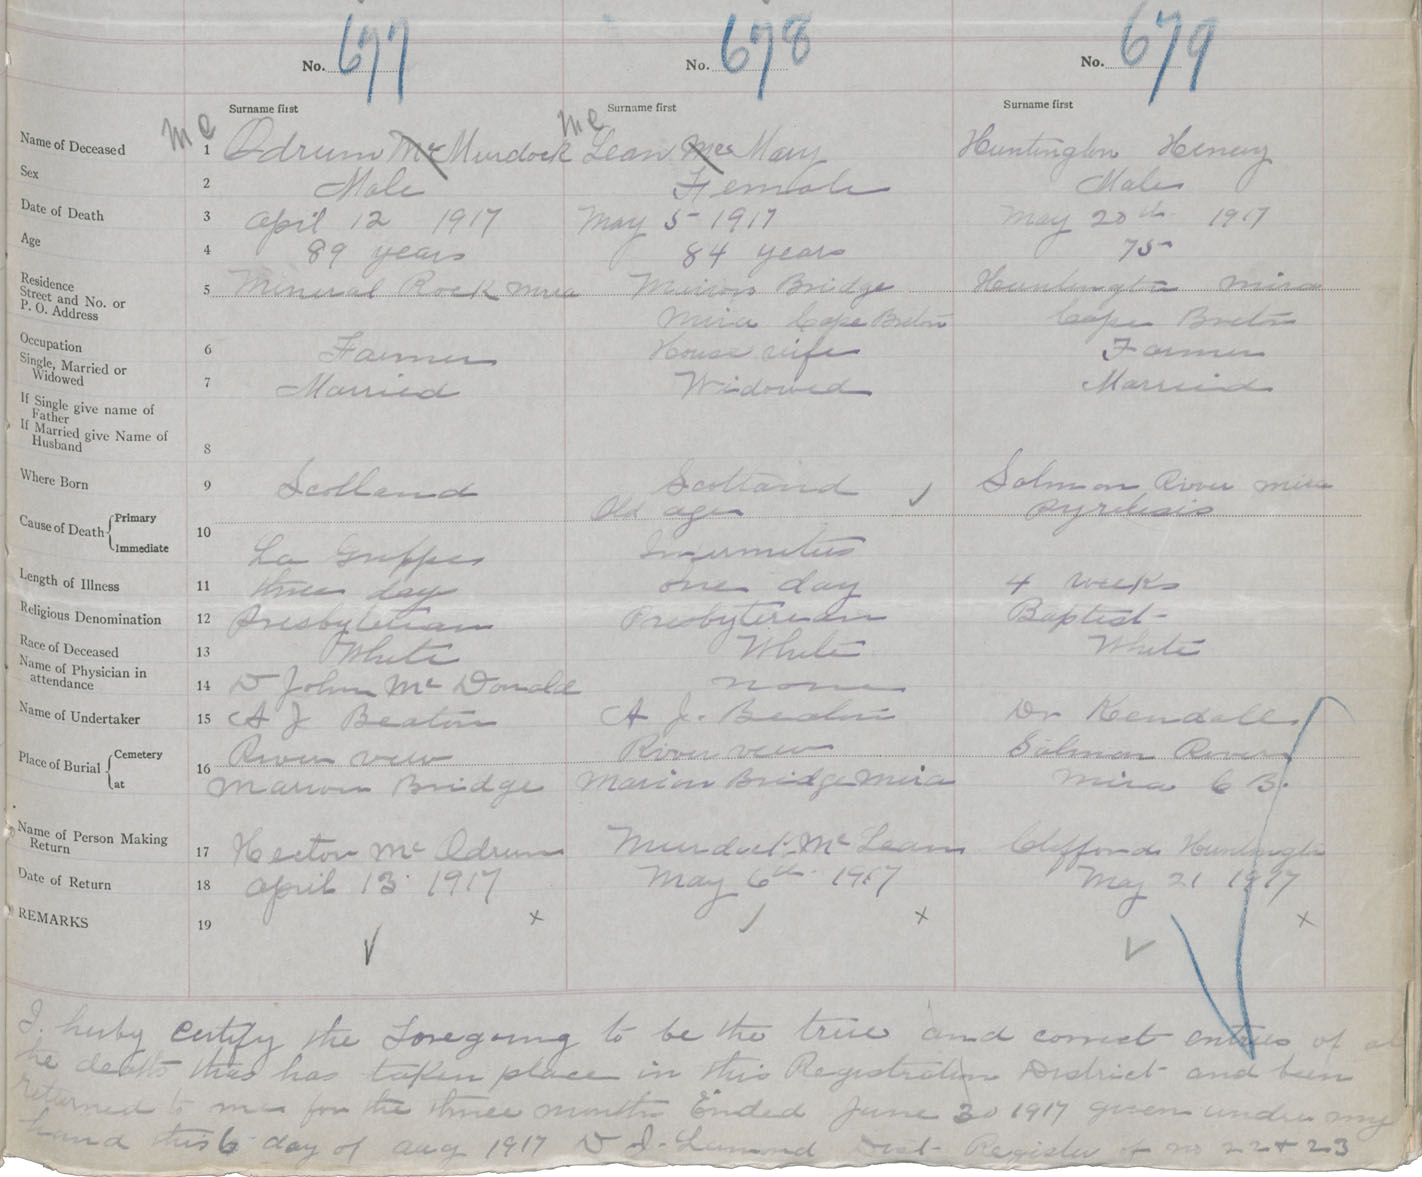 No. 677 No. 678 No. 679
Surname first Surname first Surname first
Mc Mc
Name of Deceased 1 Odrum Mc Murdock Lean Mcs Mary Huntington Henry
Sex 2 Male Female Male
Date of Death 3 April 12 1917 May 5 1917 May 20th 1917
Age 4 89 years 84 years 75
Residence
Street and No. or
P. O. Address 5 Mineral Rock Mira Marion Bridge Huntington Mira
Mira Cape Breton Cape Breton
Occupation 6 Farmer House wife Farmer
Single, Married or
Widowed 7 Married Widowed Married
If Single give name of
Father
If Married give Name of
Husband 8
Where Born 9 Scotland Scotland Salmon River Mira
Cause of Death { Primary Old age
Immediate 10 La Grippe Infirmities
Length of Illness 11 three day one day 4 weeks
Religious Denomination 12 Presbyterian Presbyterian Baptist
Race of Deceased 13 White White White
Name of Physician in
attendance 14 D John Mc Donald none
Name of Undertaker 15 A J Beaton A J. Beaton Dr Kendall
Place of Burial { Cemetery River view River view Salmon River
at 16 Marion Bridge Marion Bridge Mira Mira C B.
Name of Person Making
Return 17 Hector Mc Odrum Murdock Mc Lean Clifford Huntington
Date of Return 18 April 13 1917 May 6th 1917 May 21 1917
REMARKS 19 x x x
I herby certify the Foregoing to be the true and correct entries of al
the deaths that has taken place in this Registration District and been
returned to me for the three months Ended June 30 1917 given under my
hand this 6 day of Aug 1917 Dist Register of no 22 + 23